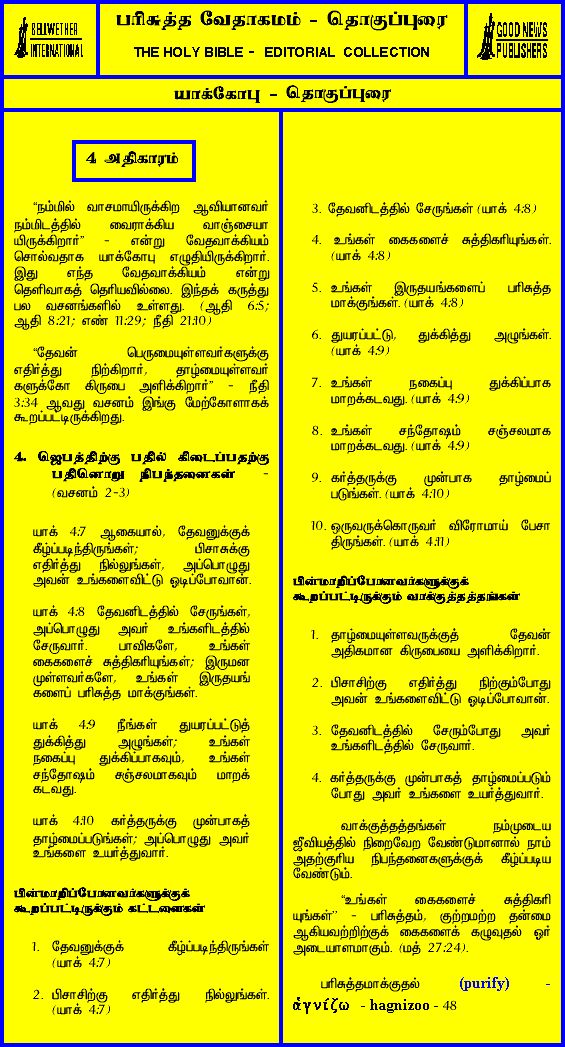 BELLWETHER
INTERNATIONAL
பரிசுத்த வேதாகமம் - தொகுப்புரை
THE HOLY BIBLE - EDITORIAL COLLECTION
GOOD NEWS
PUBLISHERS
யாக்கோபு - தொகுப்புரை
4 அதிகாரம்
“நம்மில் வாசமாயிருக்கிற ஆவியானவர்
நம்மிடத்தில் வைராக்கிய வாஞ்சையா
யிருக்கிறார்” - என்று வேதவாக்கியம்
சொல்வதாக யாக்கோபு எழுதியிருக்கிறார்.
இது எந்த வேதவாக்கியம் என்று
தெளிவாகத் தெரியவில்லை. இந்தக் கருத்து
பல வசனங்களில் உள்ளது. (ஆதி 6:5;
ஆதி 8:21; எண் 11:29; நீதி 21:10)
“தேவன் பெருமையுள்ளவர்களுக்கு
எதிர்த்து நிற்கிறார், தாழ்மையுள்ளவர்
களுக்கோ கிருபை அளிக்கிறார்” - நீதி
3:34 ஆவது வசனம் இங்கு மேற்கோளாகக்
கூறப்பட்டிருக்கிறது.
4. ஜெபத்திற்கு பதில் கிடைப்பதற்கு
பதினொறு நிபந்தனைகள் -
(வசனம் 2-3)
யாக் 4:7 ஆகையால், தேவனுக்குக்
கீழ்ப்படிந்திருங்கள்; பிசாசுக்கு
எதிர்த்து நில்லுங்கள், அப்பொழுது
அவன் உங்களைவிட்டு ஓடிப்போவான்.
யாக் 4:8 தேவனிடத்தில் சேருங்கள்,
அப்பொழுது அவர் உங்களிடத்தில்
சேருவார். பாவிகளே, உங்கள்
கைகளைச் சுத்திகரியுங்கள்; இருமன
முள்ளவர்களே, உங்கள் இருதயங்
களைப் பரிசுத்த மாக்குங்கள்.
யாக் 4:9 நீங்கள் துயரப்பட்டுத்
துக்கித்து அழுங்கள்; உங்கள்
நகைப்பு துக்கிப்பாகவும், உங்கள்
சந்தோஷம் சஞ்சலமாகவும் மாறக்
கடவது.
யாக் 4:10 கர்த்தருக்கு முன்பாகத்
தாழ்மைப்படுங்கள்; அப்பொழுது அவர்
உங்களை உயர்த்துவார்.
பின்மாறிப்போனவர்களுக்குக்
கூறப்பட்டிருக்கும் கட்டளைகள்
1. தேவனுக்குக் கீழ்ப்படிந்திருங்கள்
(யாக் 4:7)
2. பிசாசிற்கு எதிர்த்து நில்லுங்கள்.
(யாக் 4:7)
3. தேவனிடத்தில் சேருங்கள் (யாக் 4:8)
4. உங்கள் கைகளைச் சுத்திகரியுங்கள்.
(யாக் 4:8)
5. உங்கள் இருதயங்களைப் பரிசுத்த
மாக்குங்கள். (யாக் 4:8)
6. துயரப்பட்டு, துக்கித்து அழுங்கள்.
(யாக் 4:9)
7. உங்கள் நகைப்பு துக்கிப்பாக
மாறக்கடவது. (யாக் 4:9)
8. உங்கள் சந்தோஷம் சஞ்சலமாக
மாறக்கடவது. (யாக் 4:9)
9. கர்த்தருக்கு முன்பாக தாழ்மைப்
படுங்கள். (யாக் 4:10)
10. ஒருவருக்கொருவர் விரோமாய் பேசா
திருங்கள். (யாக் 4:11)
பின்மாறிப்போனவர்களுக்குக்
கூறப்பட்டிருக்கும் வாக்குத்தத்தங்கள்
1. தாழ்மையுள்ளவருக்குத் தேவன்
அதிகமான கிருபையை அளிக்கிறார்.
2. பிசாசிற்கு எதிர்த்து நிற்கும்போது
அவன் உங்களைவிட்டு ஓடிப்போவான்.
3. தேவனிடத்தில் சேரும்போது அவர்
உங்களிடத்தில் சேருவார்.
4. கர்த்தருக்கு முன்பாகத் தாழ்மைப்படும்
போது அவர் உங்களை உயர்த்துவார்.
வாக்குத்தத்தங்கள் நம்முடைய
ஜீவியத்தில் நிறைவேற வேண்டுமானால் நாம்
அதற்குரிய நிபந்தனைகளுக்குக் கீழ்ப்படிய
வேண்டும்.
“உங்கள் கைகளைச் சுத்திகரி
யுங்கள்” - பரிசுத்தம், குற்றமற்ற தன்மை
ஆகியவற்றிற்குக் கைகளைக் கழுவுதல் ஓர்
அடையாளமாகும். (மத் 27:24).
பரிசுத்தமாக்குதல் (purify) -
ἁγνίζω - hagnizoo - 48